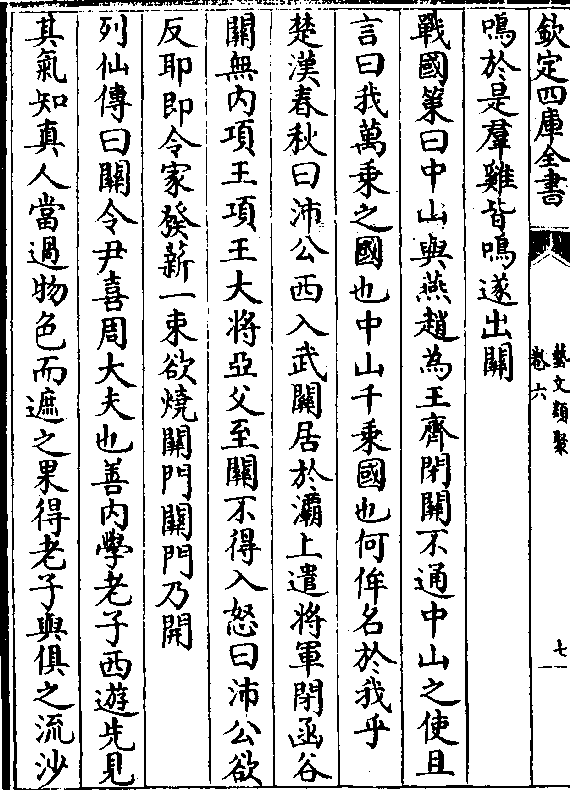 欽定四庫全書
藝文類聚
卷六
七
鳴於是羣雞皆鳴遂出關
戰國策曰中山與燕趙為王齊閉關不通中山之使且
言曰我萬乘之國也中山千乘國也何侔名於我乎
楚漢春秋曰沛公西入武關居於灞上遣將軍閉函谷
關無内項王項王大將亞父至關不得入怒曰沛公欲
反耶即令家發薪一束欲燒關門關門乃開
列仙傳曰關令尹喜周大夫也善内學老子西遊先見
其氣知真人當過物色而遮之果得老子與俱之流沙